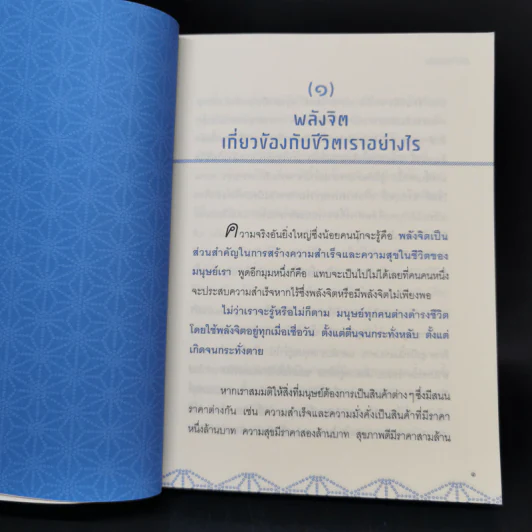 (๑)
พลังจิต
เกี่ยวข้องกับชีวิตเราอย่างไร
ความจริงอันยิ่งใหญ่ซึ่งน้อยคนนักจะรู้คือ พลังจิตเป็น
ส่วนสำคัญในการสร้างความสำเร็จและความสุขในชีวิตของ
มนุษย์เรา พูดอีกมุมหนึ่งก็คือ แทบจะเป็นไปไม่ได้เลยที่คนคนหนึ่ง
จะประสบความสำเร็จหากไร้ซึ่งพลังจิตหรือมีพลังจิตไม่เพียงพอ
ไม่ว่าเราจะรู้หรือไม่ก็ตาม มนุษย์ทุกคนต่างดำรงชีวิต
โดยใช้พลังจิตอยู่ทุกเมื่อเชื่อวัน ตั้งแต่ตื่นจนกระทั่งหลับ ตั้งแต่
เกิดจนกระทั่งตาย
หากเราสมมติให้สิ่งที่มนุษย์ต้องการเป็นสินค้าต่างๆ ซึ่งมีสนน
ราคาต่างกัน เช่น ความสำเร็จและความมั่งคั่งเป็นสินค้าที่มีราคา
หนึ่งล้านบาท ความสุขมีราคาสองล้านบาท สุขภาพดีมีราคาสามล้าน